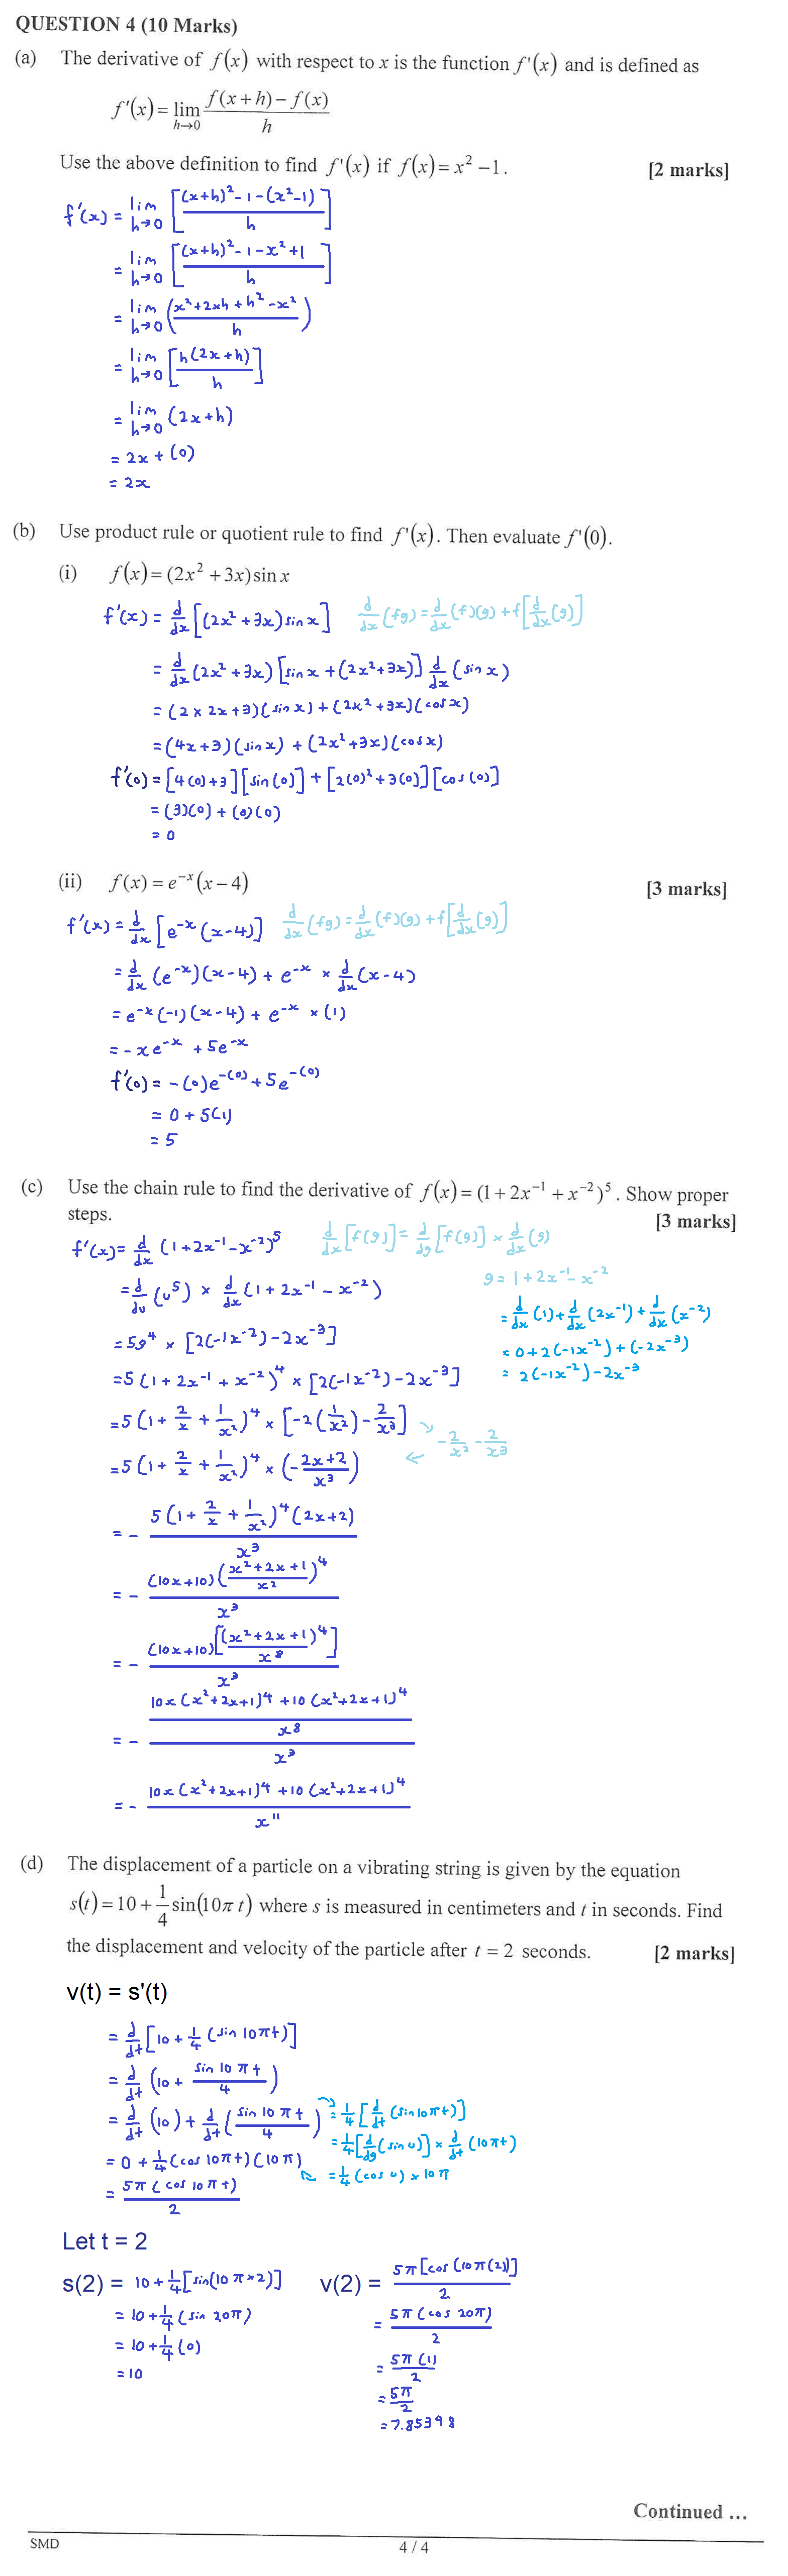 QUESTION 4 (10 Marks)
(a) The derivative of f(x) with respect to x is the function f'(x) and is defined as
f'(x) = lim h→0 (f(x+h) − f(x))/h
Use the above definition to find f'(x) if f(x) = x² −1. [2 marks]
f'(x) = lim h→0 [((x+h)² − 1 − (x²−1))/h]
= lim h→0 [((x+h)² − 1 − x² + 1)/h]
= lim h→0 ((x² + 2xh + h² − x²)/h)
= lim h→0 [h(2x+h)/h]
= lim h→0 (2x+h)
= 2x + (0)
= 2x
(b) Use product rule or quotient rule to find f'(x). Then evaluate f'(0).
(i) f(x) = (2x² + 3x) sin x
f'(x) = d/dx [(2x² + 3x) sin x] d/dx (fg) = d/dx (f)(g) + f[d/dx (g)]
= d/dx (2x² + 3x) [sin x + (2x² + 3x)] d/dx (sin x)
= (2 × 2x + 3)(sin x) + (2x² + 3x)(cos x)
= (4x+3)(sin x) + (2x² + 3x)(cos x)
f'(0) = [4(0)+3][sin(0)] + [2(0)² + 3(0)][cos(0)]
= (3)(0) + (0)(0)
= 0
(ii) f(x) = e⁻ˣ(x − 4) [3 marks]
f'(x) = d/dx [e⁻ˣ (x−4)] d/dx (fg) = d/dx (f)(g) + f[d/dx (g)]
= d/dx (e⁻ˣ)(x−4) + e⁻ˣ × d/dx (x−4)
= e⁻ˣ(−1)(x−4) + e⁻ˣ × (1)
= −xe⁻ˣ + 5e⁻ˣ
f'(0) = −(0)e^−(0) + 5e^−(0)
= 0 + 5(1)
= 5
(c) Use the chain rule to find the derivative of f(x) = (1 + 2x⁻¹ + x⁻²)⁵. Show proper
steps. [3 marks]
f'(x) = d/dx (1 + 2x⁻¹ − x⁻²)⁵ d/dx [f(g)] = d/dg [f(g)] × d/dx (g)
= d/du (u⁵) × d/dx (1 + 2x⁻¹ − x⁻²) g = 1 + 2x⁻¹ − x⁻²
= d/dx (1) + d/dx (2x⁻¹) + d/dx (x⁻²)
= 5g⁴ × [2(−1x⁻²) − 2x⁻³] = 0 + 2(−1x⁻²) + (−2x⁻³)
= 5(1 + 2x⁻¹ + x⁻²)⁴ × [2(−1x⁻²) − 2x⁻³] = 2(−1x⁻²) − 2x⁻³
= 5(1 + 2/x + 1/x²)⁴ × [−2(1/x²) − 2/x³] − 2/x² − 2/x³
= 5(1 + 2/x + 1/x²)⁴ × (− (2x+2)/x³)
= − 5(1 + 2/x + 1/x²)⁴(2x+2) / x³
= − (10x+10)((x²+2x+1)/x²)⁴ / x³
= − (10x+10)[(x²+2x+1)⁴/x⁸] / x³
= − ((10x(x²+2x+1)⁴ + 10(x²+2x+1)⁴)/x⁸) / x³
= − (10x(x²+2x+1)⁴ + 10(x²+2x+1)⁴) / x¹¹
(d) The displacement of a particle on a vibrating string is given by the equation
s(t) = 10 + 1/4 sin(10π t) where s is measured in centimeters and t in seconds. Find
the displacement and velocity of the particle after t = 2 seconds. [2 marks]
v(t) = s'(t)
= d/dt [10 + 1/4 (sin 10πt)]
= d/dt (10 + (sin 10πt)/4)
= d/dt (10) + d/dt ((sin 10πt)/4) = 1/4 [d/dt (sin 10πt)]
= 1/4 [d/dg (sin u)] × d/dt (10πt)
= 0 + 1/4 (cos 10πt)(10π) = 1/4 (cos u) × 10π
= 5π(cos 10πt)/2
Let t = 2
s(2) = 10 + 1/4 [sin(10π×2)] v(2) = 5π[cos(10π(2))]/2
= 10 + 1/4 (sin 20π) = 5π(cos 20π)/2
= 10 + 1/4 (0) = 5π(1)/2
= 10 = 5π/2
= 7.85398
Continued ...
SMD 4 / 4